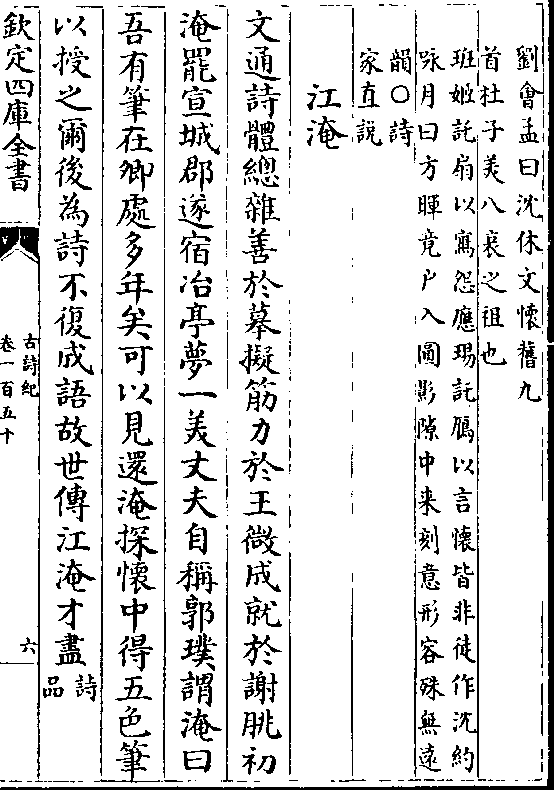 劉會孟曰沈休文懷舊九
首杜子美八哀之祖也
班姬託扇以寫怨應瑒託鴈以言懷皆非徒作沈約
咏月曰方暉竟户入圓影隙中来刻意形容殊無逺
韻○詩
家直說
江淹
文通詩體總雜善於摹擬筋力於王微成就於謝朓初
淹罷宣城郡遂宿冶亭夢一美丈夫自稱郭璞謂淹曰
吾有筆在卿處多年矣可以見還淹探懷中得五色筆
以授之爾後為詩不復成語故世傳江淹才盡詩
品
欽定四庫全書
古詩紀
卷一百五十
六